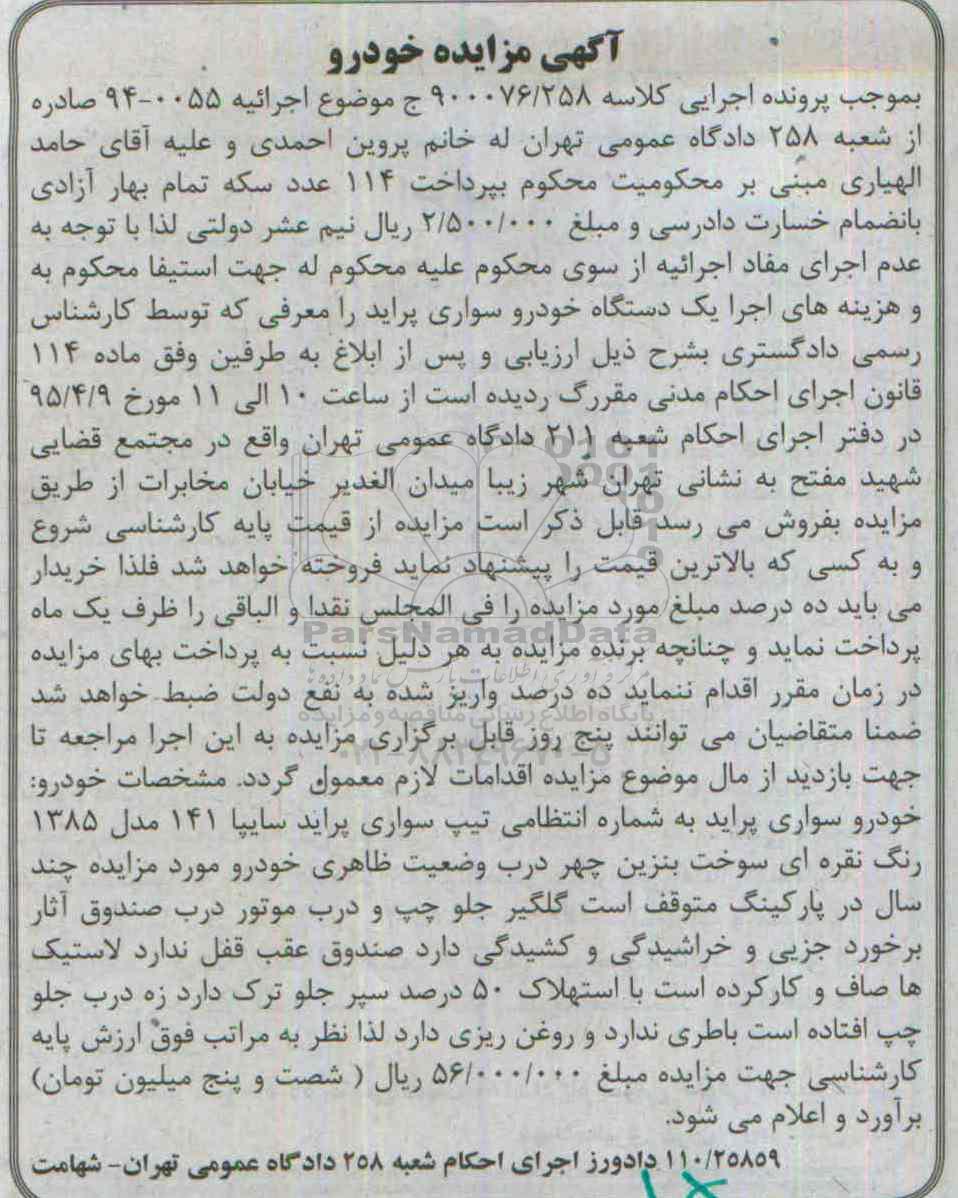 آگهی مزایده خودرو
بموجب پرونده اجرایی کلاسه ۹۰۰۰۷۶/۲۵۸ ج موضوع اجرائیه ۰۰۵۵-۹۴ صادره
از شعبه ۲۵۸ دادگاه عمومی تهران له خانم پروین احمدی و علیه آقای حامد
الهیاری مبنی بر محکومیت محکوم بپرداخت ۱۱۴ عدد سکه تمام بهار آزادی
بانضمام خسارت دادرسی و مبلغ ۲/۵۰۰/۰۰۰ ریال نیم عشر دولتی لذا با توجه به
عدم اجرای مفاد اجرائیه از سوی محکوم علیه محکوم له جهت استیفا محکوم به
و هزینه های اجرا یک دستگاه خودرو سواری پراید را معرفی که توسط کارشناس
رسمی دادگستری بشرح ذیل ارزیابی و پس از ابلاغ به طرفین وفق ماده ۱۱۴
قانون اجرای احکام مدنی مقررگ ردیده است از ساعت ۱۰ الی ۱۱ مورخ ۹۵/۴/۹
در دفتر اجرای احکام شعبه ۲۱۱ دادگاه عمومی تهران واقع در مجتمع قضایی
شهید مفتح به نشانی تهران شهر زیبا میدان الغدیر خیابان مخابرات از طریق
مزایده بفروش می رسد قابل ذکر است مزایده از قیمت پایه کارشناسی شروع
و به کسی که بالاترین قیمت را پیشنهاد نماید فروخته خواهد شد فلذا خریدار
می باید ده درصد مبلغ مورد مزایده را فی المجلس نقدا و الباقی را ظرف یک ماه
ParsNamadData
پرداخت نماید و چنانچه برنده مزایده به هر دلیل نسبت به پرداخت بهای مزایده
در زمان مقرر اقدام ننماید ده درصد واریز شده به نفع دولت ضبط خواهد شد
پایگاه اطلاع رسانی مناقصه و مزایده
ضمنا متقاضیان می توانند پنج روز قابل برگزاری مزایده به این اجرا مراجعه تا
جهت بازدید از مال موضوع مزایده اقدامات لازم معمول گردد. مشخصات خودرو:
خودرو سواری پراید به شماره انتظامی تیپ سواری پراید سایپا ۱۴۱ مدل ۱۳۸۵
رنگ نقره ای سوخت بنزین چهر درب وضعیت ظاهری خودرو مورد مزایده چند
سال در پارکینگ متوقف است گلگیر جلو چپ و درب موتور درب صندوق آثار
برخورد جزیی و خراشیدگی و کشیدگی دارد صندوق عقب قفل ندارد لاستیک
ها صاف و کارکرده است با استهلاک ۵۰ درصد سپر جلو ترک دارد زه درب جلو
چپ افتاده است باطری ندارد و روغن ریزی دارد لذا نظر به مراتب فوق ارزش پایه
کارشناسی جهت مزایده مبلغ ۵۶/۰۰۰/۰۰۰ ریال ( شصت و پنج میلیون تومان)
برآورد و اعلام می شود.
۱۱۰/۲۵۸۵۹ دادورز اجرای احکام شعبه ۲۵۸ دادگاه عمومی تهران- شهامت